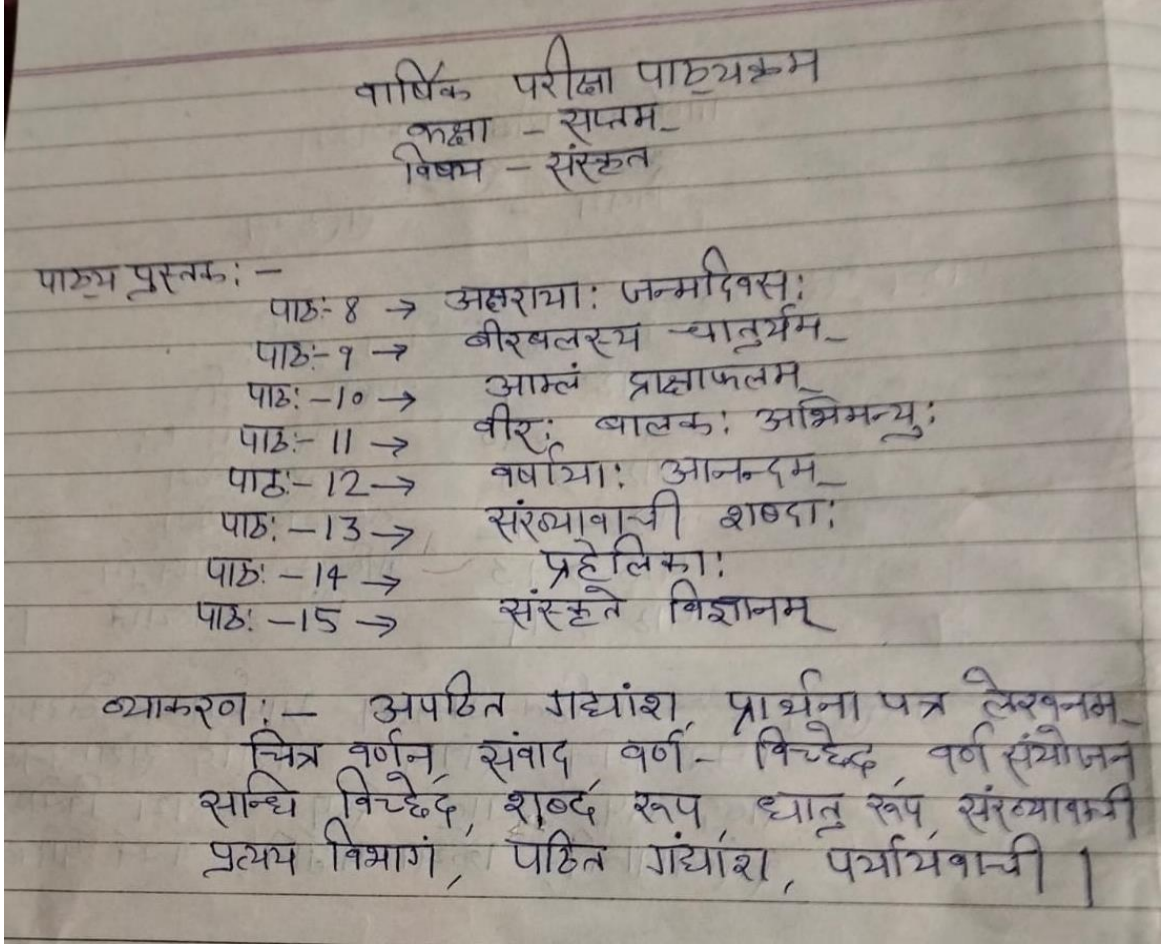 वार्षिक परीक्षा पाठ्यक्रम
कक्षा - सप्तम्
विषय - संस्कृत
पाठ्य पुस्तक: -
पाठ:- 8 → अक्षराया: जन्मदिवस:
पाठ:- 9 → बीरबलस्य चातुर्यम्
पाठ: -10 → आम्लं द्राक्षाफलम्
पाठ:- 11 → वीर: बालक: अभिमन्यु:
पाठ:- 12 → वर्षाया: आनन्दम्
पाठ: -13 → संख्यावाची शब्दा:
पाठ: -14 → प्रहेलिका:
पाठ: -15 → संस्कृते विज्ञानम्
व्याकरण:- अपठित गद्यांश, प्रार्थना पत्र लेखनम्
चित्र वर्णन, संवाद, वर्ण - विच्छेद, वर्ण संयोजन
सन्धि विच्छेद, शब्द रूप, धातु रूप, संख्यावाची
प्रत्यय विभाग, पठित गद्यांश, पर्यायवाची |